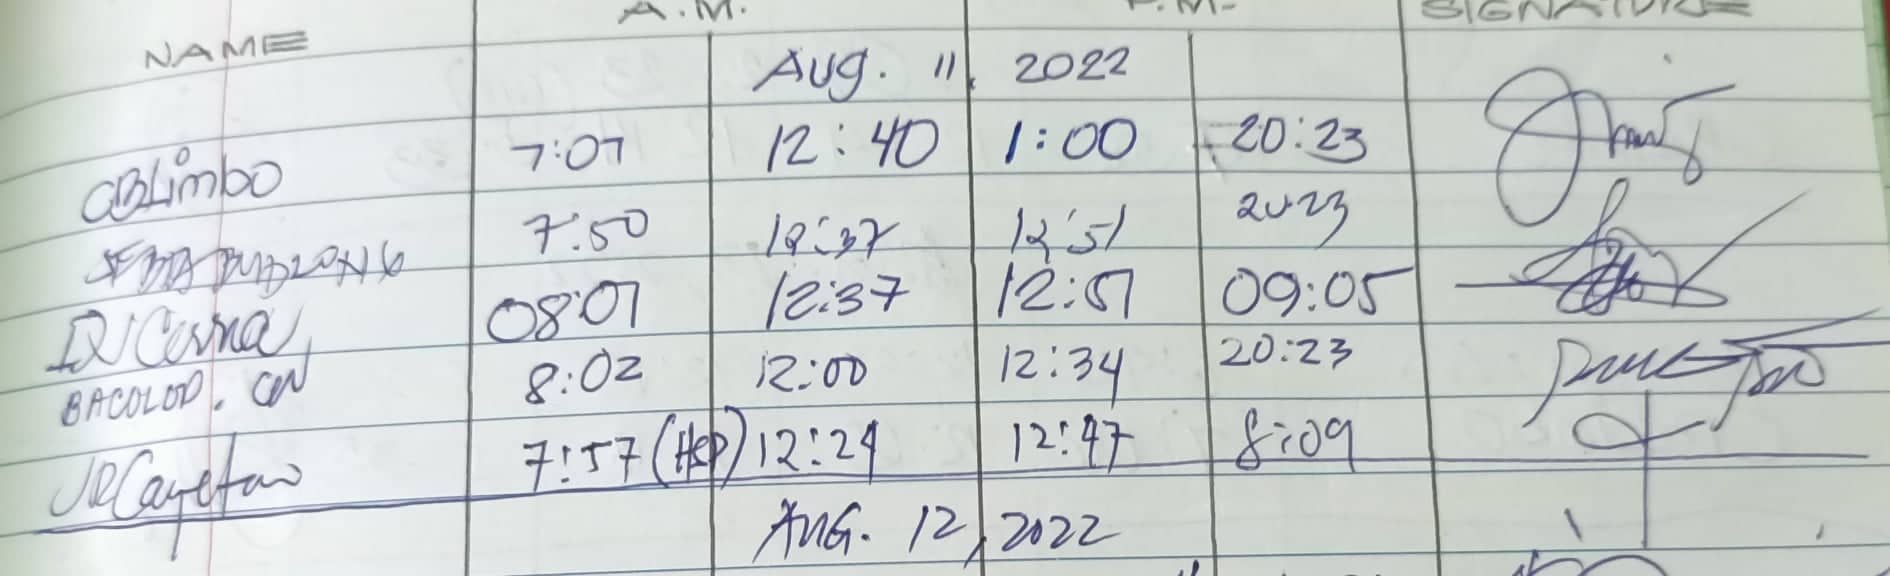 NAME A.M. P.M. SIGNATURE
Aug. 11, 2022
CBLimbo 7:07 12:40 1:00 20:23
7:50 12:37 12:51 2023
08:07 12:37 12:51 09:05
BACOLOD. CN 8:02 12:00 12:34 20:23
JRCayetano 7:57 (HSP) 12:24 12:47 8:09
AUG. 12, 2022